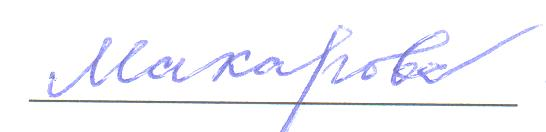 Макарова